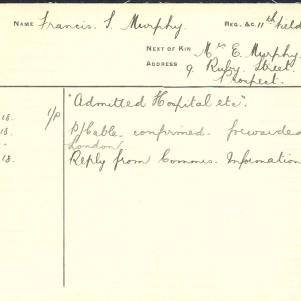 NAME Francis. S. Murphy. REG. &C. 11th Field
NEXT OF KIN Mrs E. Murphy.
ADDRESS 9. Ruby Street.
Prospect.
18. I/P "Admitted Hospital etc".
18. P/Cable confirmed. forwarded
- London
18. Reply from Commis. Information